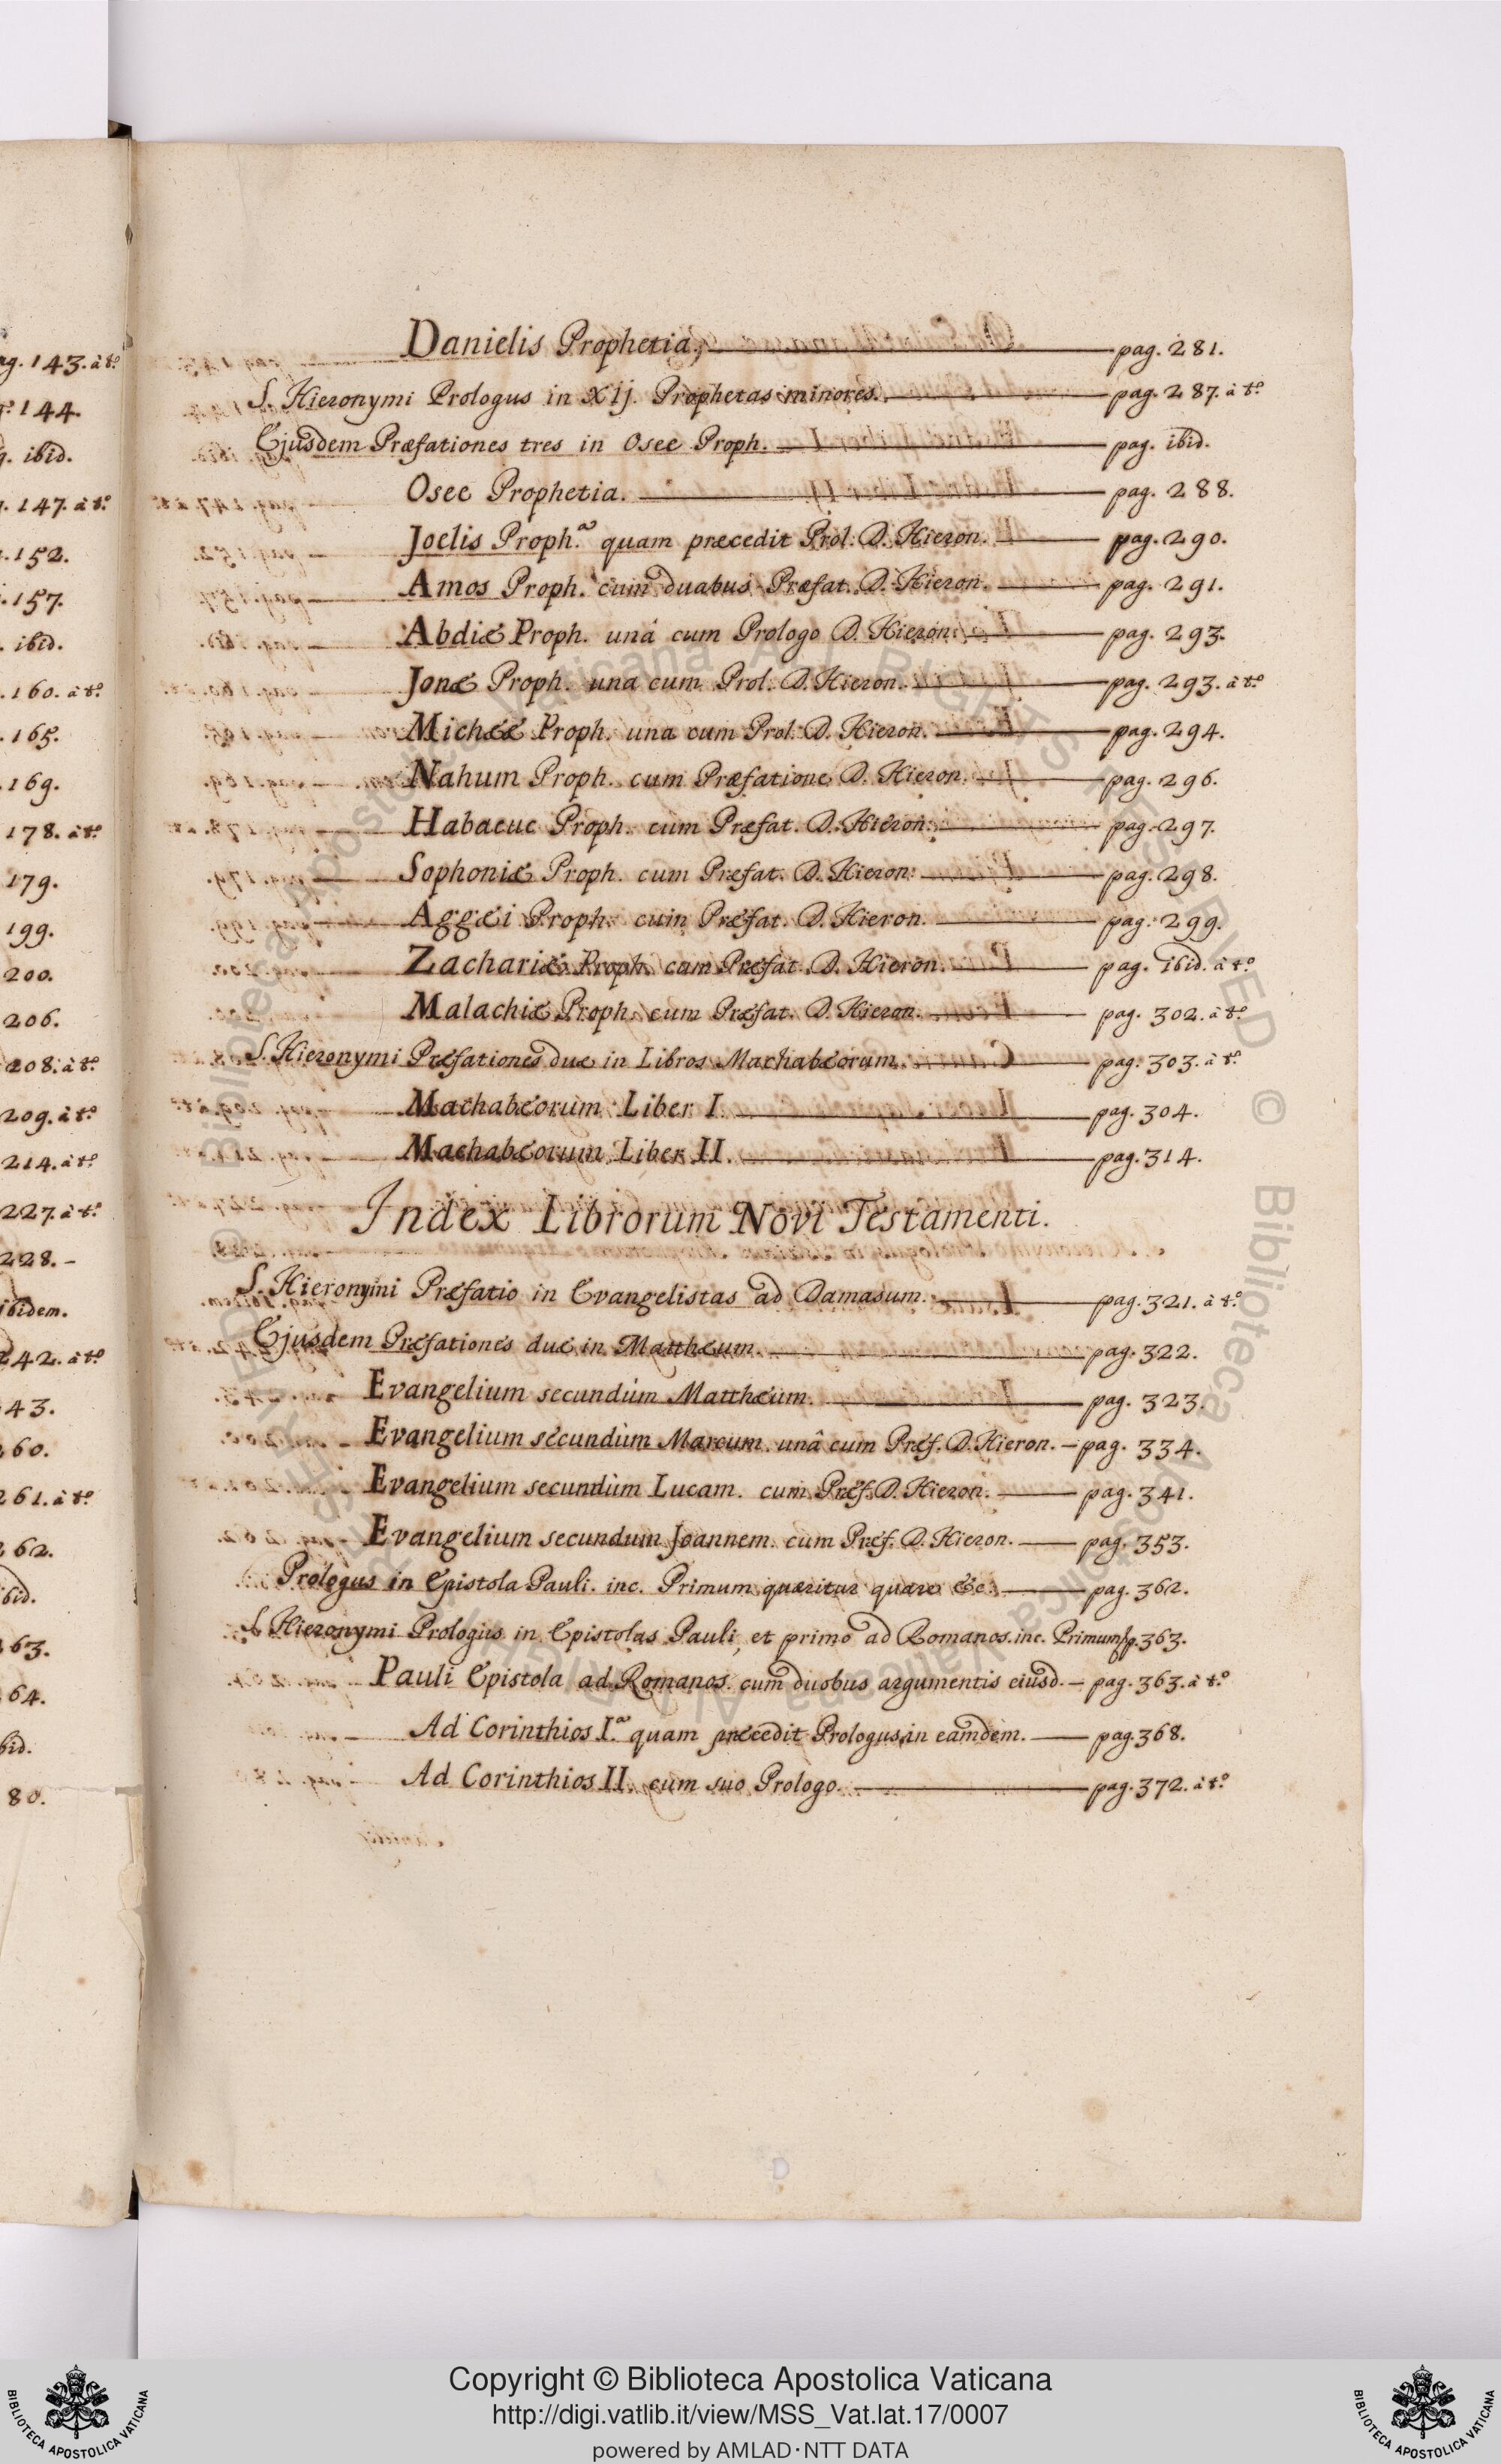 ag. 143. à t.º
144.
. ibid.
. 147. à t.º
. 152.
. 157.
. ibid.
. 160. à t.º
. 165.
. 169.
178. à t.º
179.
199.
200.
206.
208. à t.º
209. à t.º
214. à t.º
227. à t.º
228. -
ibidem.
242. à t.º
43.
60.
261. à t.º
62.
bid.
63.
64.
bid.
80.
Danielis Prophetia, pag. 281.
S. Hieronymi Prologus in Xij. Prophetas minores. pag. 287. à t.º
Ejusdem Præfationes tres in Osee Proph. pag. ibid.
Osee Prophetia. pag. 288.
Joelis Proph.ª quam præcedit Prol. D. Hieron. pag. 290.
Amos Proph. cum duabus Præfat. D. Hieron. pag. 291.
Abdiæ Proph. unà cum Prologo D. Hieron. pag. 293.
Jonæ Proph. una cum Prol. D. Hieron. pag. 293. à t.º
Micheæ Proph. una cum Prol. D. Hieron. pag. 294.
Nahum Proph. cum Præfatione D. Hieron. pag. 296.
Habacuc Proph. cum Præfat. D. Hieron. pag. 297.
Sophoniæ Proph. cum Præfat. D. Hieron. pag. 298.
Aggæi Proph. cum Præfat. D. Hieron. pag. 299.
Zachariæ Proph. cum Præfat. D. Hieron. pag. ibid. à t.º
Malachiæ Proph. cum Præfat. D. Hieron. pag. 302. à t.º
S. Hieronymi Præfationes duæ in Libros Machabæorum. pag. 303. à t.º
Machabæorum Liber I. pag. 304.
Machabæorum Liber II. pag. 314.
Index Librorum Novi Testamenti.
S. Hieronymi Præfatio in Evangelistas ad Damasum. pag. 321. à t.º
Ejusdem Præfationes duæ in Matthæum. pag. 322.
Evangelium secundùm Matthæum. pag. 323.
Evangelium secundùm Marcum. unâ cum Præf. D. Hieron. – pag. 334.
Evangelium secundùm Lucam. cum Præf. D. Hieron. pag. 341.
Evangelium secundum Joannem. cum Præf. D. Hieron. pag. 353.
Prologus in Epistola Pauli. inc. Primum quæritur quare &c. pag. 362.
S. Hieronymi Prologus in Epistolas Pauli, et primo ad Romanos. inc. Primum p. 363.
Pauli Epistola ad Romanos. cum duobus argumentis eiusd. – pag. 363. à t.º
Ad Corinthios I.ª quam præcedit Prologus in eamdem. pag. 368.
Ad Corinthios II. cum suo Prologo. pag. 372. à t.º
© Biblioteca Apostolica Vaticana ALL RIGHTS RESERVED © Biblioteca Apostolica Vaticana ALL RIGHTS RESERVED
Copyright © Biblioteca Apostolica Vaticana
http://digi.vatlib.it/view/MSS_Vat.lat.17/0007
powered by AMLAD·NTT DATA
BIBLIOTECA APOSTOLICA VATICANA
BIBLIOTECA APOSTOLICA VATICANA